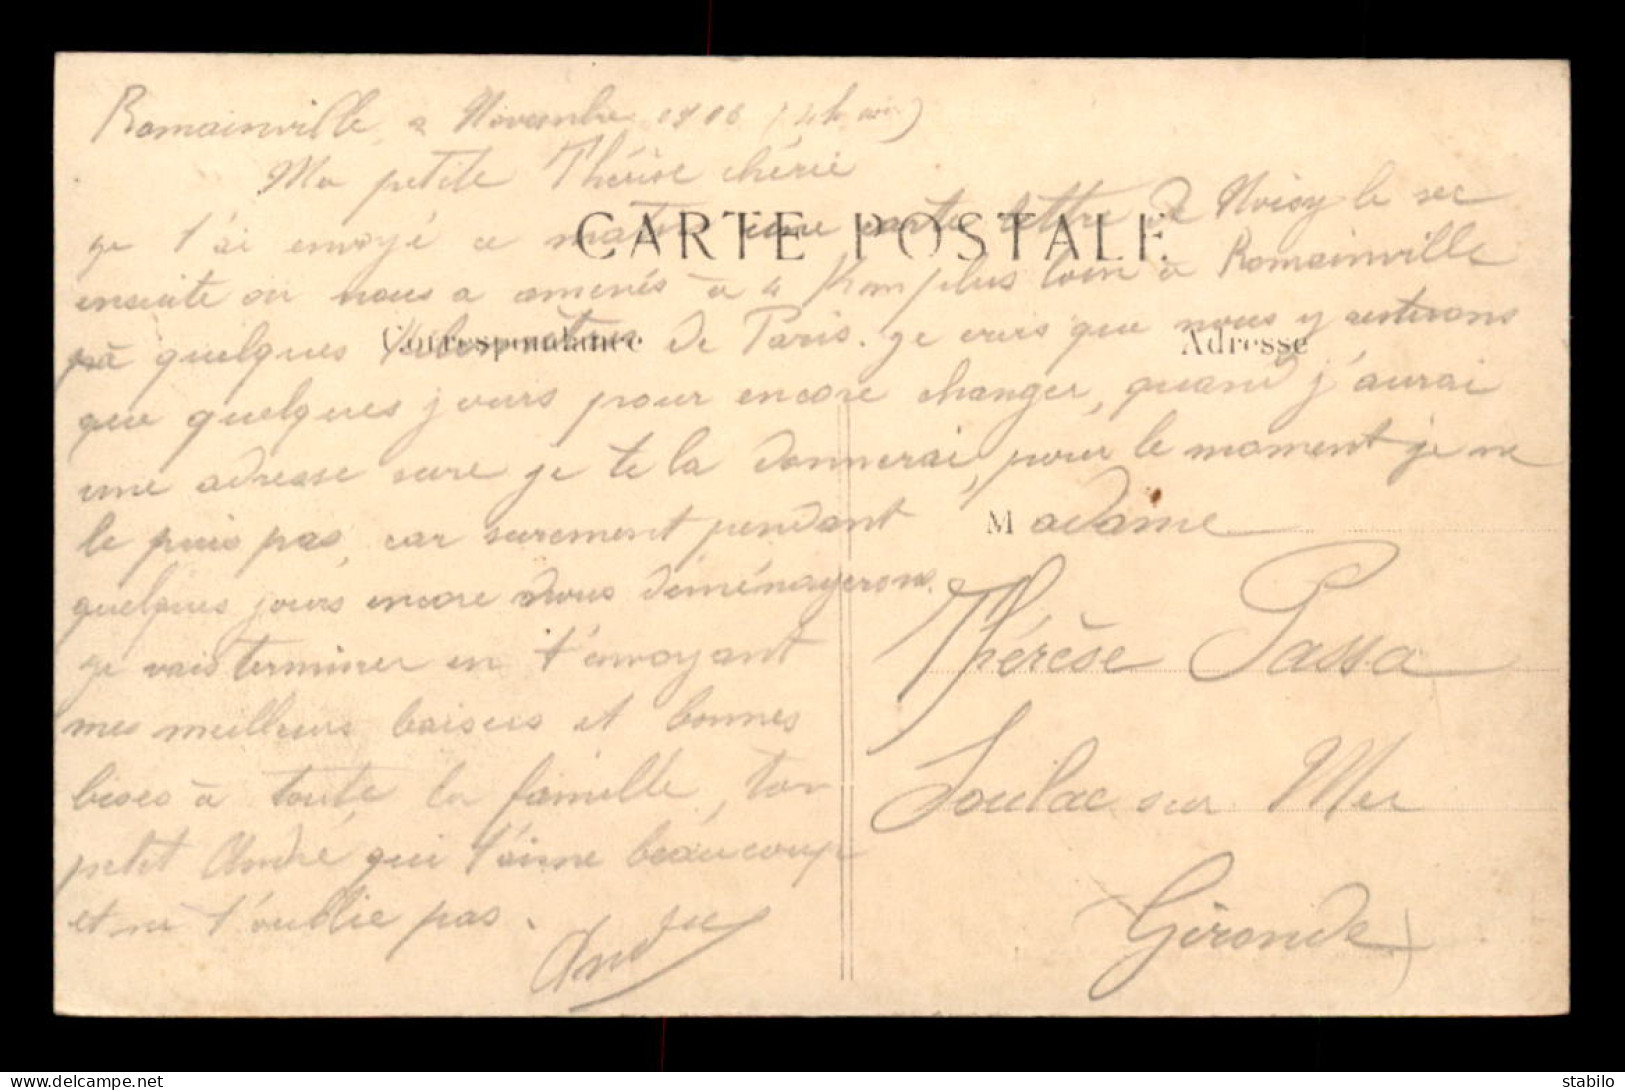 Romainville, 2 Novembre
Ma petite Thérèse chérie
CARTE POSTALE
je t'ai envoyé ce matin une carte lettre de Noisy le sec
ensuite on nous a amenés à 4 Km plus loin à Romainville
à quelques Kilomètres de Paris. je crois que nous y resterons
Correspondance
Adresse
que quelques jours pour encore changer, quand j'aurai
une adresse sure je te la donnerai, pour le moment je ne
le puis pas, car surement pendant
quelques jours encore nous déménagerons.
je vais terminer en t'envoyant
mes meilleurs baisers et bonnes
bises à toute la famille, ton
petit André qui t'aime beaucoup
et ne t'oublie pas.
André
Madame
Thérèse Passa
Soulac sur Mer
(Gironde)
delcampe.net
stabilo